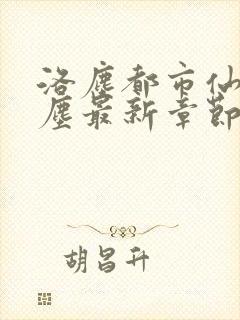 洛塵都市仙
塵最新章節
胡昌升